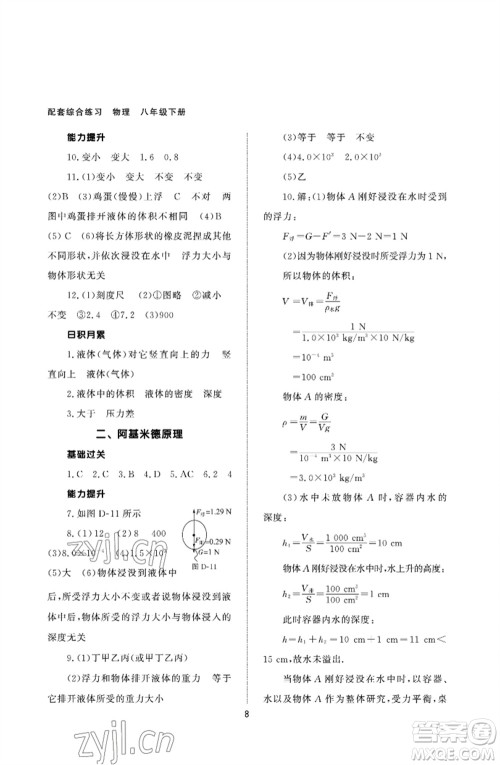 配套综合练习 物理 八年级下册
能力提升
10.变小 变大 1.6 0.8
11.(1)变小 变大 不变 不变
(2)B (3)鸡蛋(慢慢)上浮 不变 两
图中鸡蛋排开液体的体积不相同 (4)B
(5)C (6)将长方体形状的橡皮泥捏成其他
不同形状,并依次浸没在水中 浮力大小与
物体形状无关
12.(1)刻度尺 (2)①图略 ②减小
不变 ③2.4 (3)900
日积月累
1.液体(气体)对它竖直向上的力 竖直
向上 液体(气体)
2.液体中的体积 液体的密度 深度
3.大于 压力差
二、阿基米德原理
基础过关
1.C 2.C 3.B 4.D 5.AC 6.2 4
能力提升
7.如图 D-11 所示
8.(1)12 (2)8 (3)400
(3)8.0×10⁻⁴ (4)1.5×10³
F浮=1.29 N
F=0.29 N
图 D-11
(5)大 (6)物体浸没到液体中
后,物体所受的浮力大小与深度无关 浸没
前,物体所受的浮力大小与物体浸入的
深度无关
9.(1)丁甲乙丙(或丙丁甲乙)
(2)浮力和物体排开液体的重力 等于
它排开液体所受的重力大小
(3)物体的重力大小
(3)不变 变大
(4)4.0×10³ 2.0×10³
(5)乙
10.解:(1)物体 A 刚好浸没在水中时受到
的浮力:
F浮=G-F′=3 N-2 N=1 N
(2)因为物体刚好浸没时所受浮力为 1 N,
所以物体的体积:
V=V排=F浮/ρ水g
=1 N/1.0×10³ kg/m³×10 N/kg
=10⁻⁴ m³
=100 cm³
物体 A 的密度:
ρ=m/V=G/Vg
=3 N/10⁻⁴ m³×10 N/kg
=3.0×10³ kg/m³
(3)水中未放物体 A 时,容器内水的
深度:
h₁=V水/S=1 000 cm³/100 cm²=10 cm
物体 A 浸没在水中时,水上升的高度:
h₂=V排/S=100 cm³/100 cm²=1 cm
此时容器内水的深度:
h=h₁+h₂=10 cm+1 cm=11 cm<
15 cm,故水未溢出.
当物体 A 浸没在水中时,以容器、水
以及物体 A 作为整体研究,受力平衡,桌
8
zyjl.cn